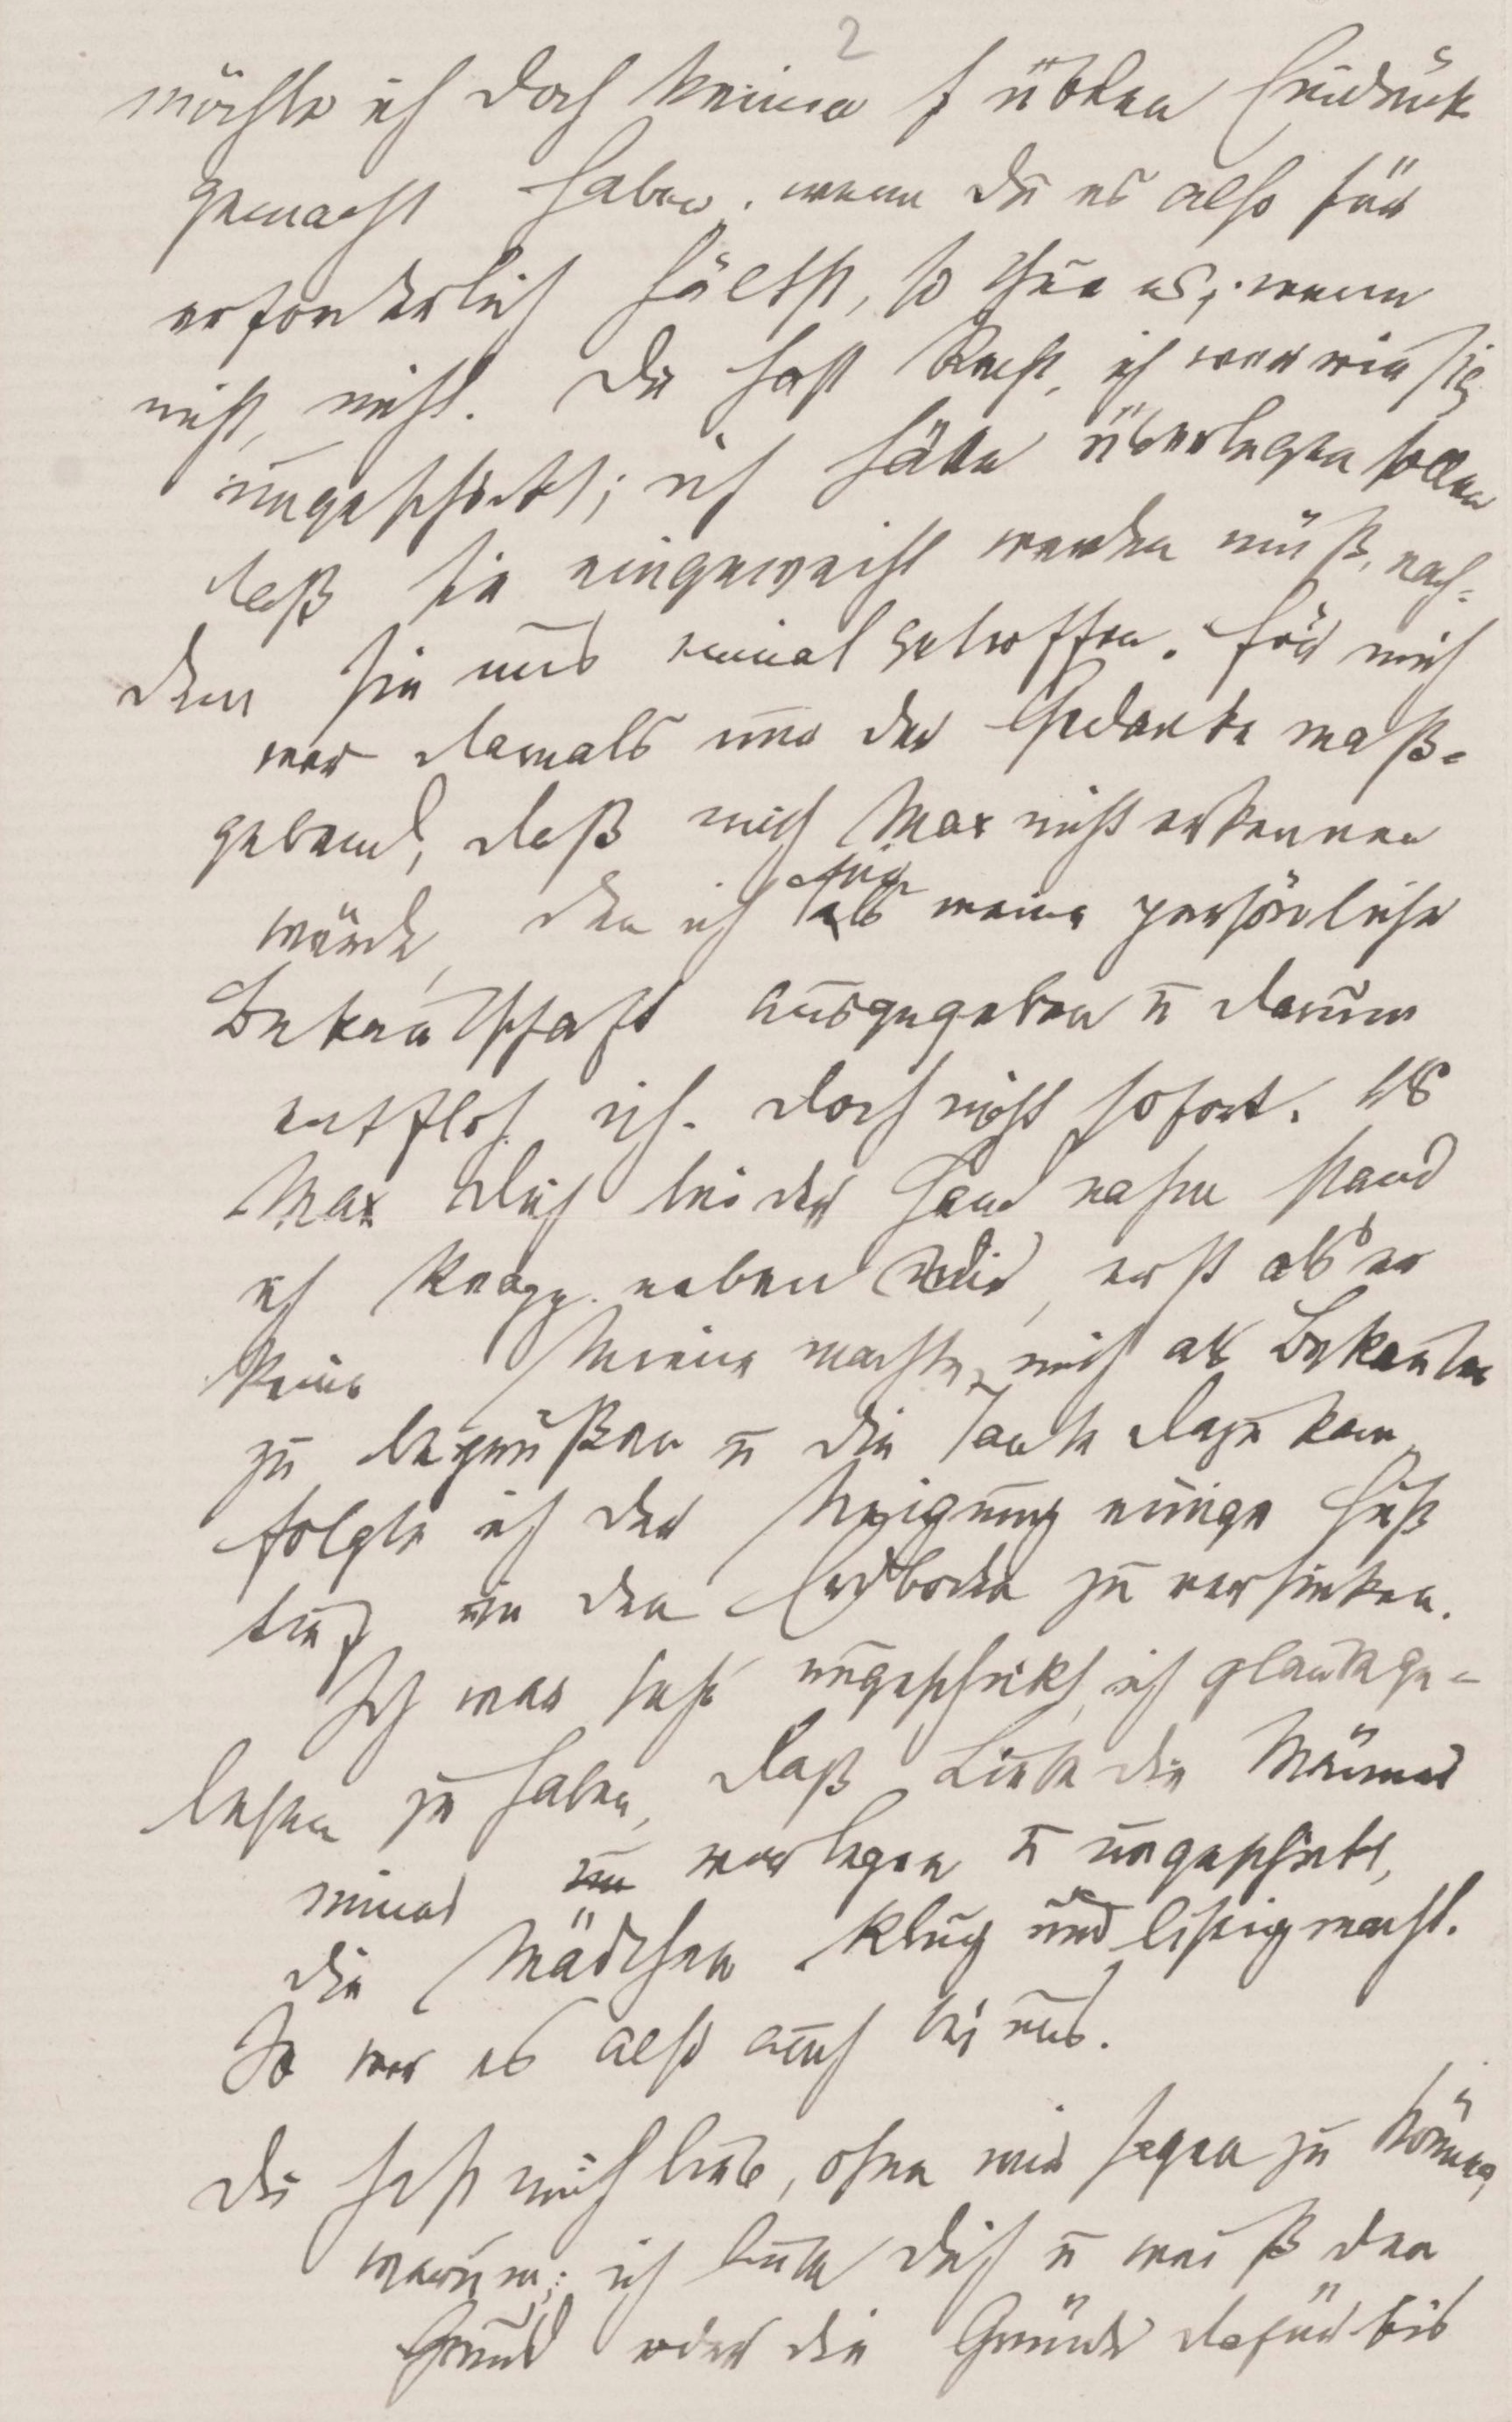 2
möchte ich doch keinen üblen Eindruck
gemacht haben. wenn du es also für
erforderlich hältst, so thue es; wenn
nicht, nicht. Du hast Recht, ich war riesig
ungeschickt; ich häte überlegen sollen
daß sie eingeweiht werden muß, nach-
dem sie uns einmal getroffen. für mich
war damals nur der Gedanke maß-
gebend, daß mich Max nicht erkennen
würde, den ich für meine persönliche
Bekantschaft ausgegeben u darum
entfloh ich. doch nicht sofort. Als
Max dich bei der Hand nahm stand
ich knapp neben dir, erst als er
keine Miene machte, mich als Bekanten
zu begrüßen u die Tante dazu kam,
folgte ich der Neigung einige Fuß
tief in den Erdboden zu versinken.
Ich war sehr ungeschickt, ich glaube ge-
lesen zu haben, daß Liebe die Männer
immer verlegen u ungeschickt,
die Mädchen klug und listig macht.
So war es also auch bei uns.
Du hast mich lieb, ohne mir sagen zu können
warum; ich liebe dich u weiß den
Grund oder die Gründe dafür bis